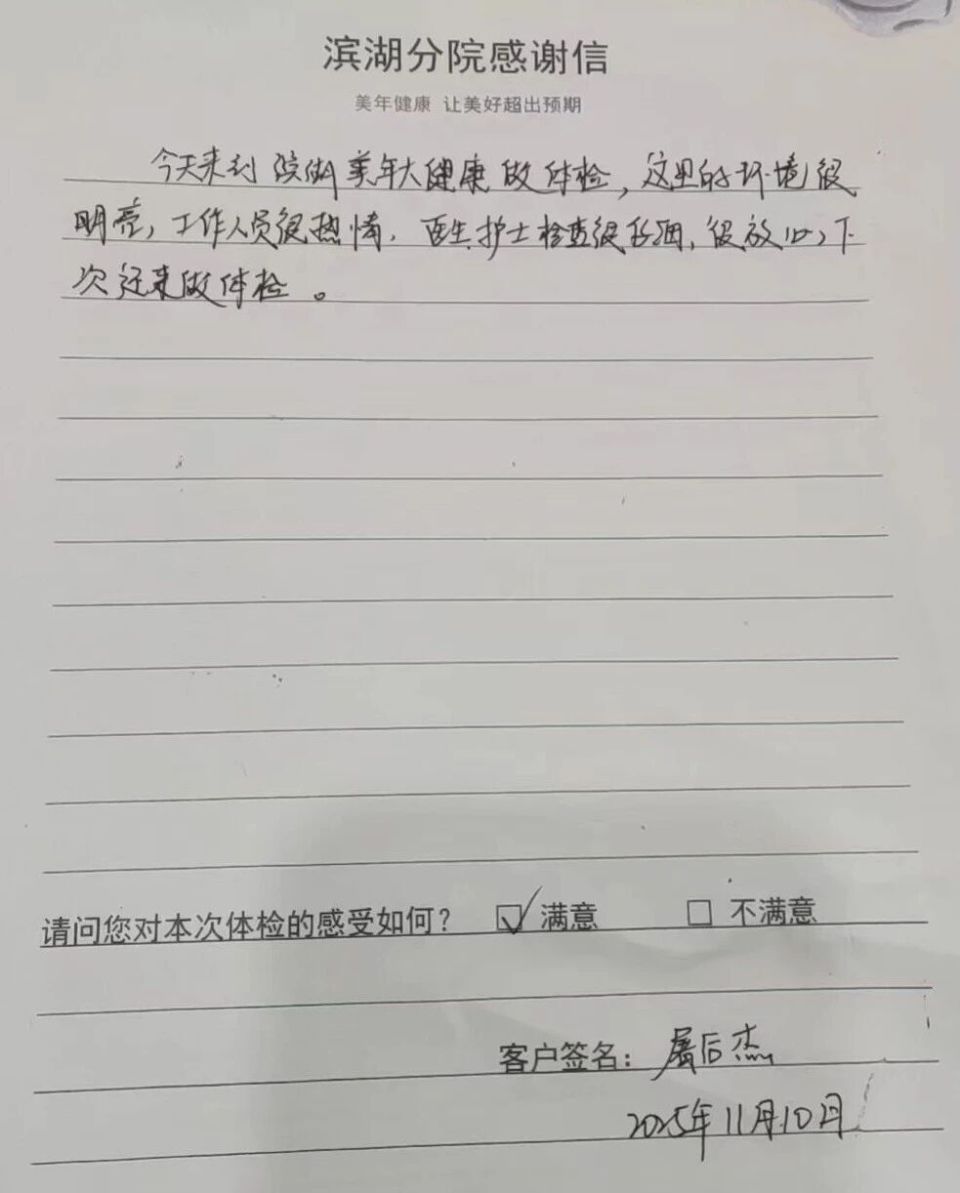 滨湖分院感谢信
美年健康 让美好超出预期
今天来到滨湖美年大健康做体检，这里的环境很
明亮，工作人员很热情，医生护士检查很仔细，很放心，下
次还来做体检。
请问您对本次体检的感受如何？ ☑ 满意 □ 不满意
客户签名：屠后杰
2025年11月10日